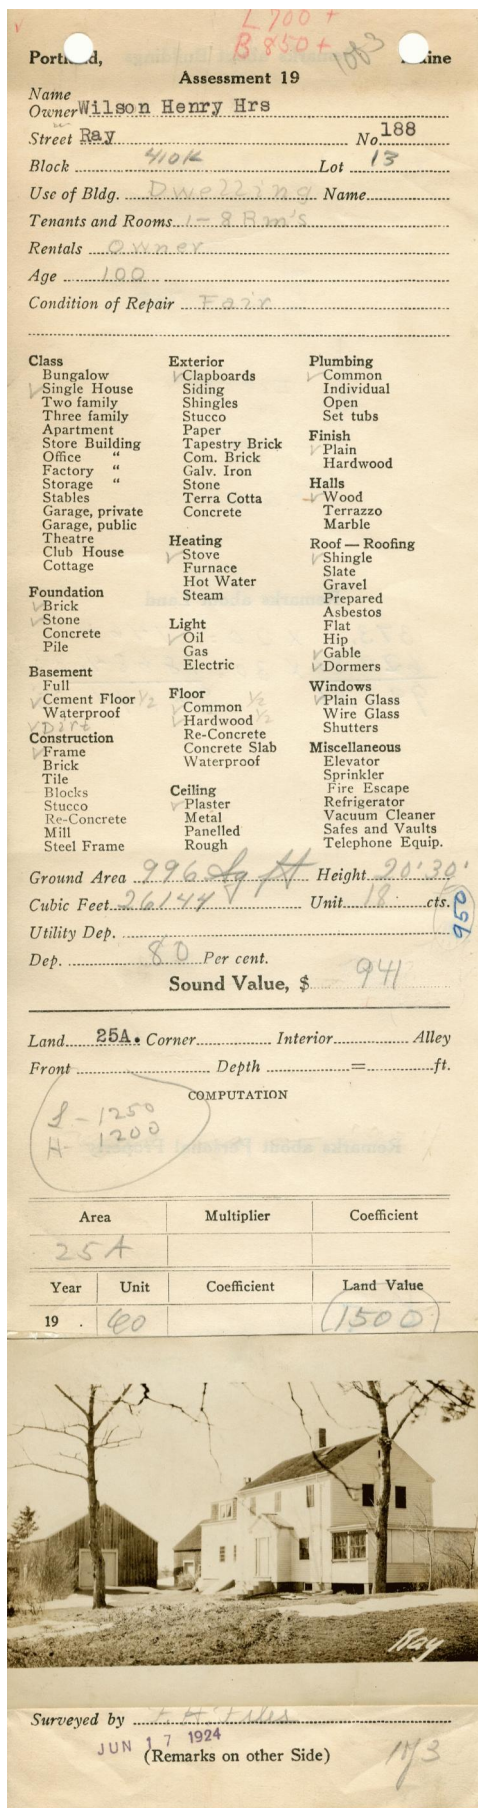 L 700 +
B 850 +
1 of 3
Portland, Maine
Assessment 19
Name
Owner Wilson Henry Hrs
Street Ray No 188
Block 410K Lot 13
Use of Bldg. Dwelling Name
Tenants and Rooms 1-8 Rm's
Rentals Owner
Age 100
Condition of Repair Fair
Class
Bungalow
✓ Single House
Two family
Three family
Apartment
Store Building
Office "
Factory "
Storage "
Stables
Garage, private
Garage, public
Theatre
Club House
Cottage
Foundation
✓ Brick
✓ Stone
Concrete
Pile
Basement
Full
✓ Cement Floor 1/2
Waterproof
✓ Dirt
Construction
✓ Frame
Brick
Tile
Blocks
Stucco
Re-Concrete
Mill
Steel Frame
Exterior
✓ Clapboards
Siding
Shingles
Stucco
Paper
Tapestry Brick
Com. Brick
Galv. Iron
Stone
Terra Cotta
Concrete
Heating
✓ Stove
Furnace
Hot Water
Steam
Light
✓ Oil
Gas
Electric
Floor
✓ Common 1/2
✓ Hardwood 1/2
Re-Concrete
Concrete Slab
Waterproof
Ceiling
✓ Plaster
Metal
Panelled
Rough
Plumbing
✓ Common
Individual
Open
Set tubs
Finish
✓ Plain
Hardwood
Halls
✓ Wood
Terrazzo
Marble
Roof — Roofing
✓ Shingle
Slate
Gravel
Prepared
Asbestos
Flat
Hip
✓ Gable
✓ Dormers
Windows
✓ Plain Glass
Wire Glass
Shutters
Miscellaneous
Elevator
Sprinkler
Fire Escape
Refrigerator
Vacuum Cleaner
Safes and Vaults
Telephone Equip.
Ground Area 996 Sq ft Height 20' 30'
Cubic Feet 26144 Unit 18 cts.
950
Utility Dep.
Dep. 80 Per cent.
Sound Value, $ 941
Land 25A. Corner Interior Alley
Front Depth = ft.
COMPUTATION
L - 1250
H - 1200
Area Multiplier Coefficient
25 A
Year Unit Coefficient Land Value
19 . 60 1500
Ray
Surveyed by
JUN 17 1924
(Remarks on other Side)
1 of 3